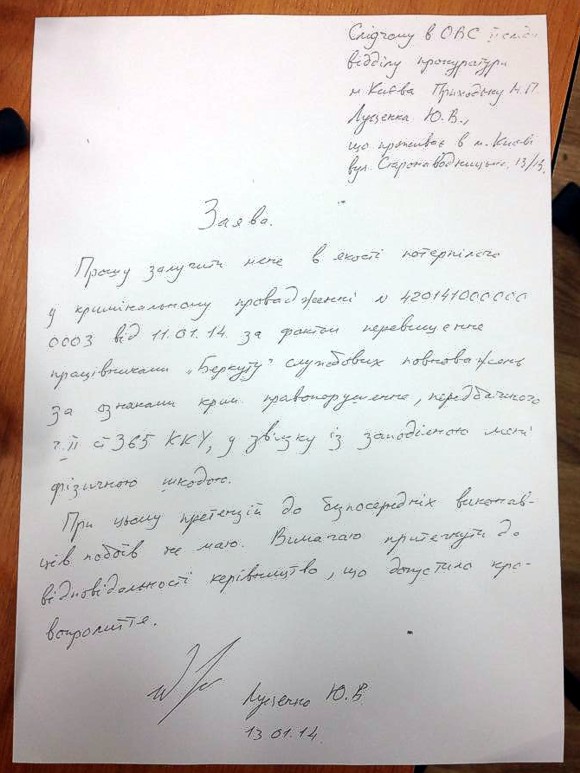 Слідчому в ОВС ІІ слід
відділу прокуратури
м Києва Приходьку Н.П.
Луценка Ю.В.,
що проживає в м. Києві
вул. Старонаводницька, 13/
Заява.
Прошу залучити мене в якості потерпілого
у кримінальному провадженні N 420141000000
0003 від 11.01.14. за фактом перевищення
працівниками „Беркуту" службових повноважень
за ознаками крим. правопорушення, передбаченого
ч. ІІ ст 365 ККУ, у звязку із заподіяною мені
фізичною шкодою.
При цьому претензій до безпосередніх виконав-
ців побоїв не маю. Вимагаю притягнути до
відповідальності керівництво, що допустило кро-
вопролиття.
Луценко Ю.В
13 01.14.